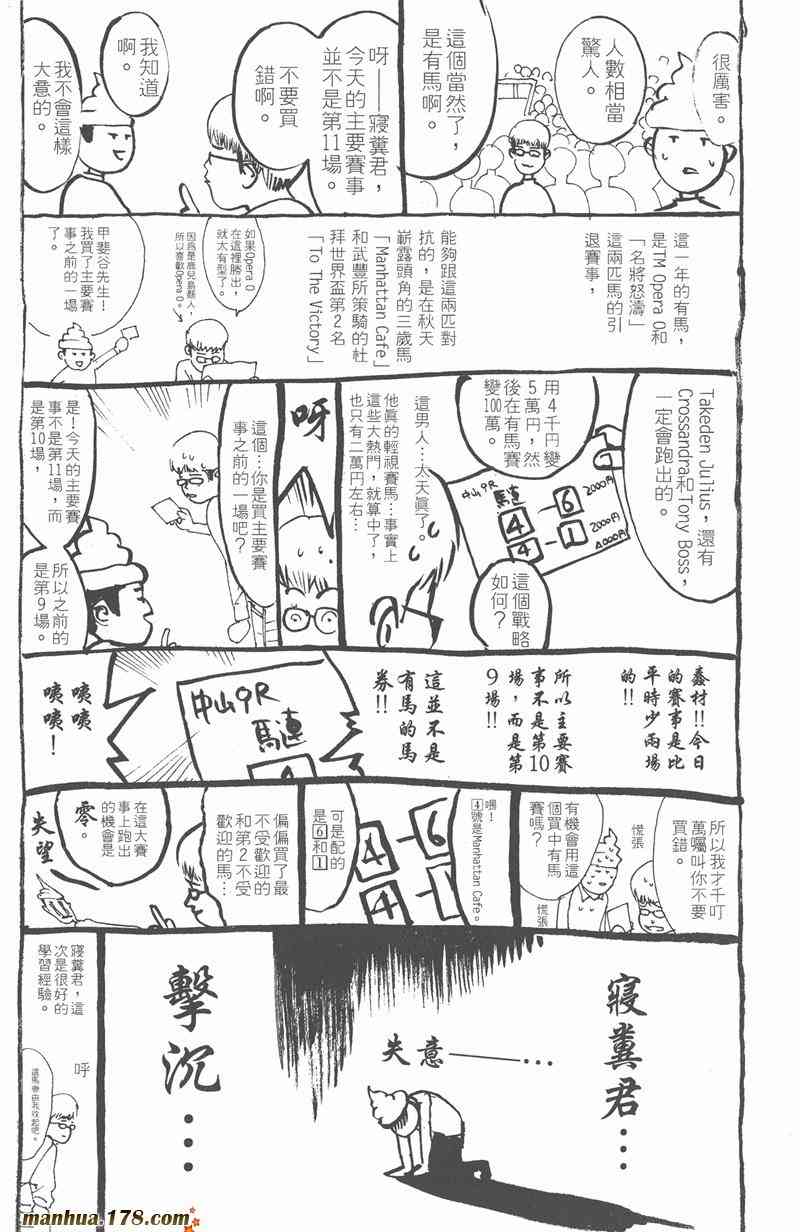 很厲害。
人數相當
驚人。
這個當然了，
是有馬啊。
呀——寢糞君，
今天的主要賽事
並不是第11場。
不要買
錯啊。
我知道
啊。
我不會這樣
大意的。
這一年的有馬，
是TM Opera O和
「名將怒濤」
這兩匹馬的引
退賽事，
能夠跟這兩匹對
抗的，是在秋天
嶄露頭角的三歲馬
「Manhattan Cafe」
和武豐所策騎的杜
拜世界盃第2名
「To The Victory」
如果Opera O
在這裡勝出，
就太有型了。
因為是鹿兒島縣人，
所以喜歡Opera O。
甲斐谷先生！
我買了主要賽
事之前的一場
了。
Takeden Julius，還有
Crossandra和Tony Boss，
一定會跑出的。
用4千円變
5萬円，然
後在有馬賽
變100萬。
中山9R
馬連
4—6 2000円
4—1 2000円
4000円
這個戰略
如何？
這男人…太天真了。
他真的輕視賽馬…事實上
這些大熱門，就算中了，
也只有二萬円左右…
呀
這個…你是買主要賽
事之前的一場吧？
是！今天的主要賽
事不是第11場，而
是第10場，
所以之前的
是第9場。
蠢材!!今日
的賽事是比
平時少兩場
的!!
所以主要賽
事不是第10
場，而是第
9場!!
這並不是
有馬的馬
券!!
中山9R
馬連
4
咦咦
咦咦！
所以我才千叮
萬囑叫你不要
買錯。
慌張
有機會用這
個買中有馬
賽嗎？
慌張
喂！
4號是Manhattan Cafe。
4—6
4—1
可是配的
是6和1
偏偏買了最
不受歡迎的
和第2不受
歡迎的馬…
在這大賽
事上跑出
的機會是
零。
失望
寢糞君…
失意——…
擊沉…
寢糞君，這
次是很好的
學習經驗。
呼
這馬券由我收起吧。
manhua.178.com